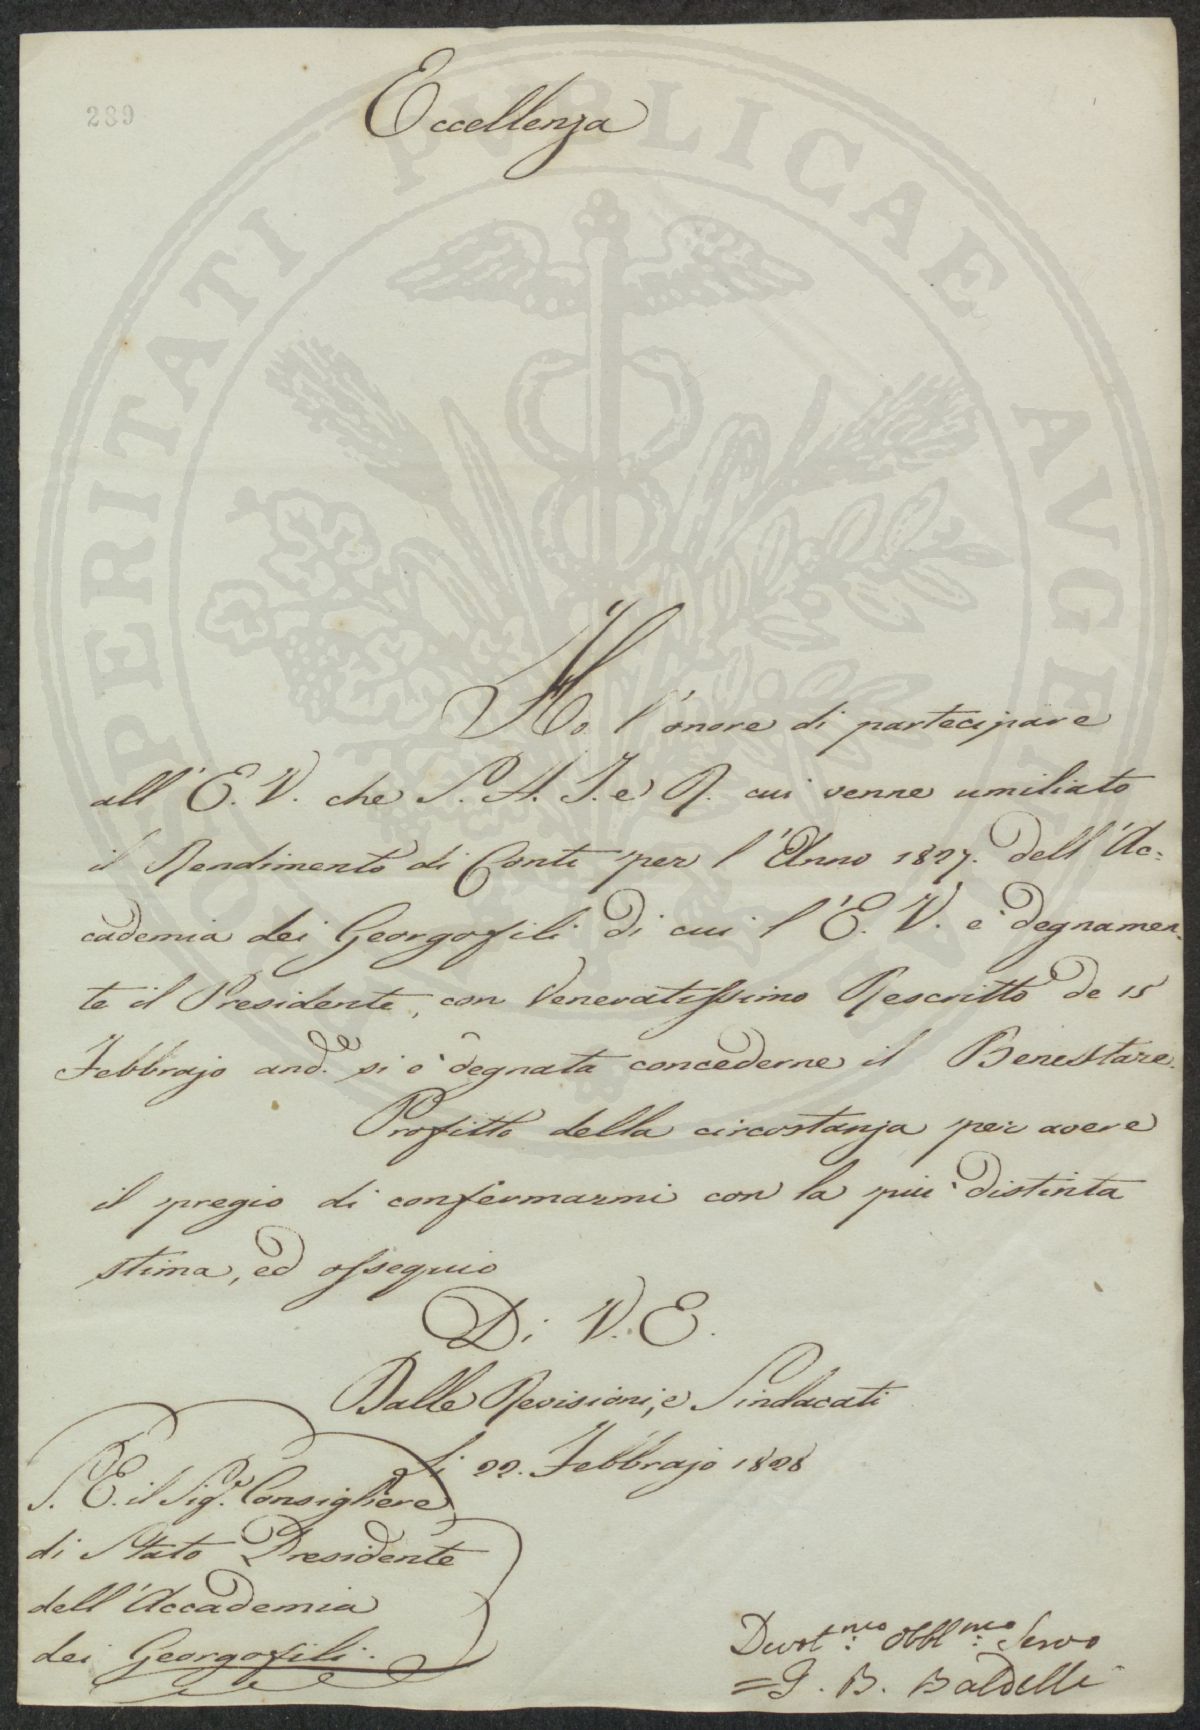 289
Eccellenza
Ho l'onore di partecipare
all'E. V. che S. A. I. e R. cui venne umiliato
il Rendimento di Conti per l'Anno 1827. dell'Ac=
cademia dei Georgofili di cui l'E. V. è degnamen-
te il Presidente, con Veneratissimo Rescritto de 15
Febbrajo and.e si è degnata concederne il BeneStare.
Profitto della circostanza per avere
il pregio di confermarmi con la più distinta
stima, ed ossequio
Di V. E.
Dalle Revisioni, e Sindacati
li 22. Febbrajo 1828
S. E. il Sig.r Consigliere
di Stato Presidente
dell'Accademia
dei Georgofili.
Devot.mo Obbl.mo Servo
=G. B. Baldelli
PROSPERITATI PVBLICAE AVGENDAE